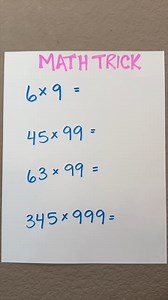 MATH TRICK
6 × 9 =
45 × 99 =
63 × 99 =
345 × 999 =